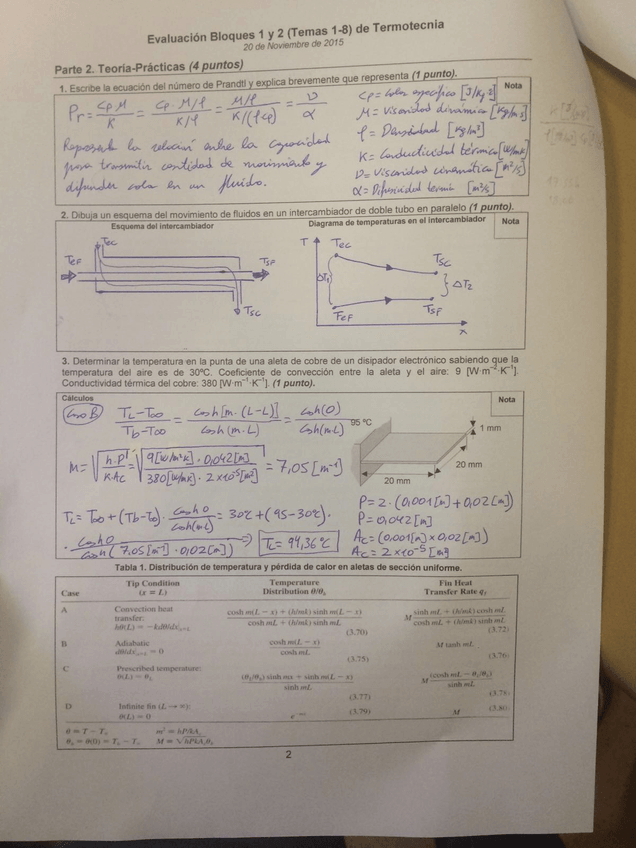 Evaluación Bloques 1 y 2 (Temas 1-8) de Termotecnia
20 de Noviembre de 2015
Parte 2. Teoría-Prácticas (4 puntos)
1. Escribe la ecuación del número de Prandtl y explica brevemente que representa (1 punto).
Nota
Pr = Cp·M / K = Cp·M/ρ / K/ρ = M/ρ / K/(ρcp) = υ / α
Representa la relación entre la capacidad
para transmitir cantidad de movimiento y
difundir calor en un fluido.
Cp = Calor específico [J/Kg·K]
M = Viscosidad dinámica [Kg/m·s]
ρ = Densidad [Kg/m³]
K = Conductividad térmica [W/mK]
υ = Viscosidad cinemática [m²/s]
α = Difusividad térmica [m²/s]
2. Dibuja un esquema del movimiento de fluidos en un intercambiador de doble tubo en paralelo (1 punto).
Esquema del intercambiador
Diagrama de temperaturas en el intercambiador
Nota
TEC
TEF
TSF
TSC
T
TEC
TSC
ΔT1
ΔT2
TEF
TSF
x
3. Determinar la temperatura en la punta de una aleta de cobre de un disipador electrónico sabiendo que la
temperatura del aire es de 30ºC. Coeficiente de convección entre la aleta y el aire: 9 [W·m⁻²·K⁻¹].
Conductividad térmica del cobre: 380 [W·m⁻¹·K⁻¹]. (1 punto).
Cálculos
Nota
Caso B
TL-T∞ / Tb-T∞ = cosh[m·(L-L)] / cosh(m·L) = cosh(0) / cosh(m·L)
M = √(h·P / K·Ac) = √(9[W/m²K]·0,042[m] / 380[W/mK]·2×10⁻⁵[m²]) = 7,05[m⁻¹]
TL = T∞ + (Tb-T∞)· cosh 0 / cosh(m·L) = 30ºC + (95-30ºC)·
· cosh 0 / cosh(7,05[m⁻¹]·0,02[m]) ⇒ TL = 94,36ºC
95 ºC
1 mm
20 mm
20 mm
P = 2·(0,001[m]+0,02[m])
P = 0,042[m]
Ac = (0,001[m]×0,02[m])
Ac = 2×10⁻⁵[m²]
Tabla 1. Distribución de temperatura y pérdida de calor en aletas de sección uniforme.
Case
Tip Condition (x = L)
Temperature Distribution θ/θb
Fin Heat Transfer Rate qf
A
Convection heat transfer:
hθ(L) = −kdθ/dx|x=L
cosh m(L − x) + (h/mk) sinh m(L − x) / cosh mL + (h/mk) sinh mL
(3.70)
M sinh mL + (h/mk) cosh mL / cosh mL + (h/mk) sinh mL
(3.72)
B
Adiabatic
dθ/dx|x=L = 0
cosh m(L − x) / cosh mL
(3.75)
M tanh mL
(3.76)
C
Prescribed temperature:
θ(L) = θL
(θL/θb) sinh mx + sinh m(L − x) / sinh mL
(3.77)
M (cosh mL − θL/θb) / sinh mL
(3.78)
D
Infinite fin (L → ∞):
θ(L) = 0
e⁻ᵐˣ
(3.79)
M
(3.80)
θ = T − T∞ m² = hP/kAc
θb = θ(0) = Tb − T∞ M = √hPkAcθb
2